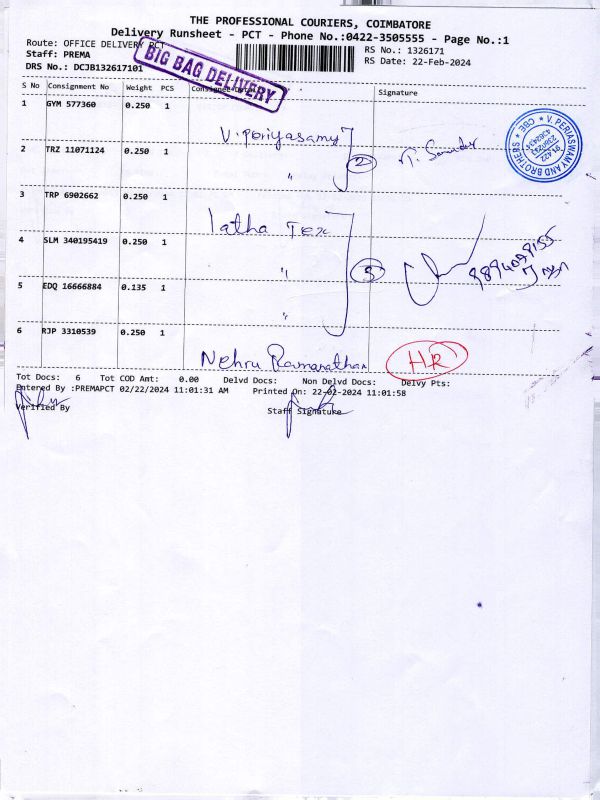 THE PROFESSIONAL COURIERS, COIMBATORE
Delivery Runsheet - PCT - Phone No.:0422-3505555 - Page No.:1
Route: OFFICE DELIVERY PCT
RS No.: 1326171
Staff: PREMA
RS Date: 22-Feb-2024
DRS No.: DCJB132617101
BIG BAG DELIVERY
S No Consignment No Weight PCS Consignee Details Signature
1 GYM 577360 0.250 1
V. Periyasamy
2 TRZ 11071124 0.250 1
"
2
V. PERIASWAMY AND BROTHERS
CBE
3 TRP 6902662 0.250 1
latha Tex
4 SLM 340195419 0.250 1
"
3
5 EDQ 16666884 0.135 1
"
6 RJP 3310539 0.250 1
Nehru Ramanathan
HR
Tot Docs: 6 Tot COD Amt: 0.00 Delvd Docs: Non Delvd Docs: Delvy Pts:
Entered By :PREMAPCT 02/22/2024 11:01:31 AM Printed On: 22-02-2024 11:01:58
Verified By
Staff Signature